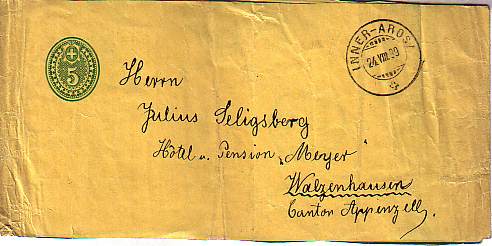 5
INNER-AROSA
24.VIII.99
Herrn
Julius Seligsberg
Hôtel u. Pension „Meyer"
Walzenhausen
Canton Appenzell.